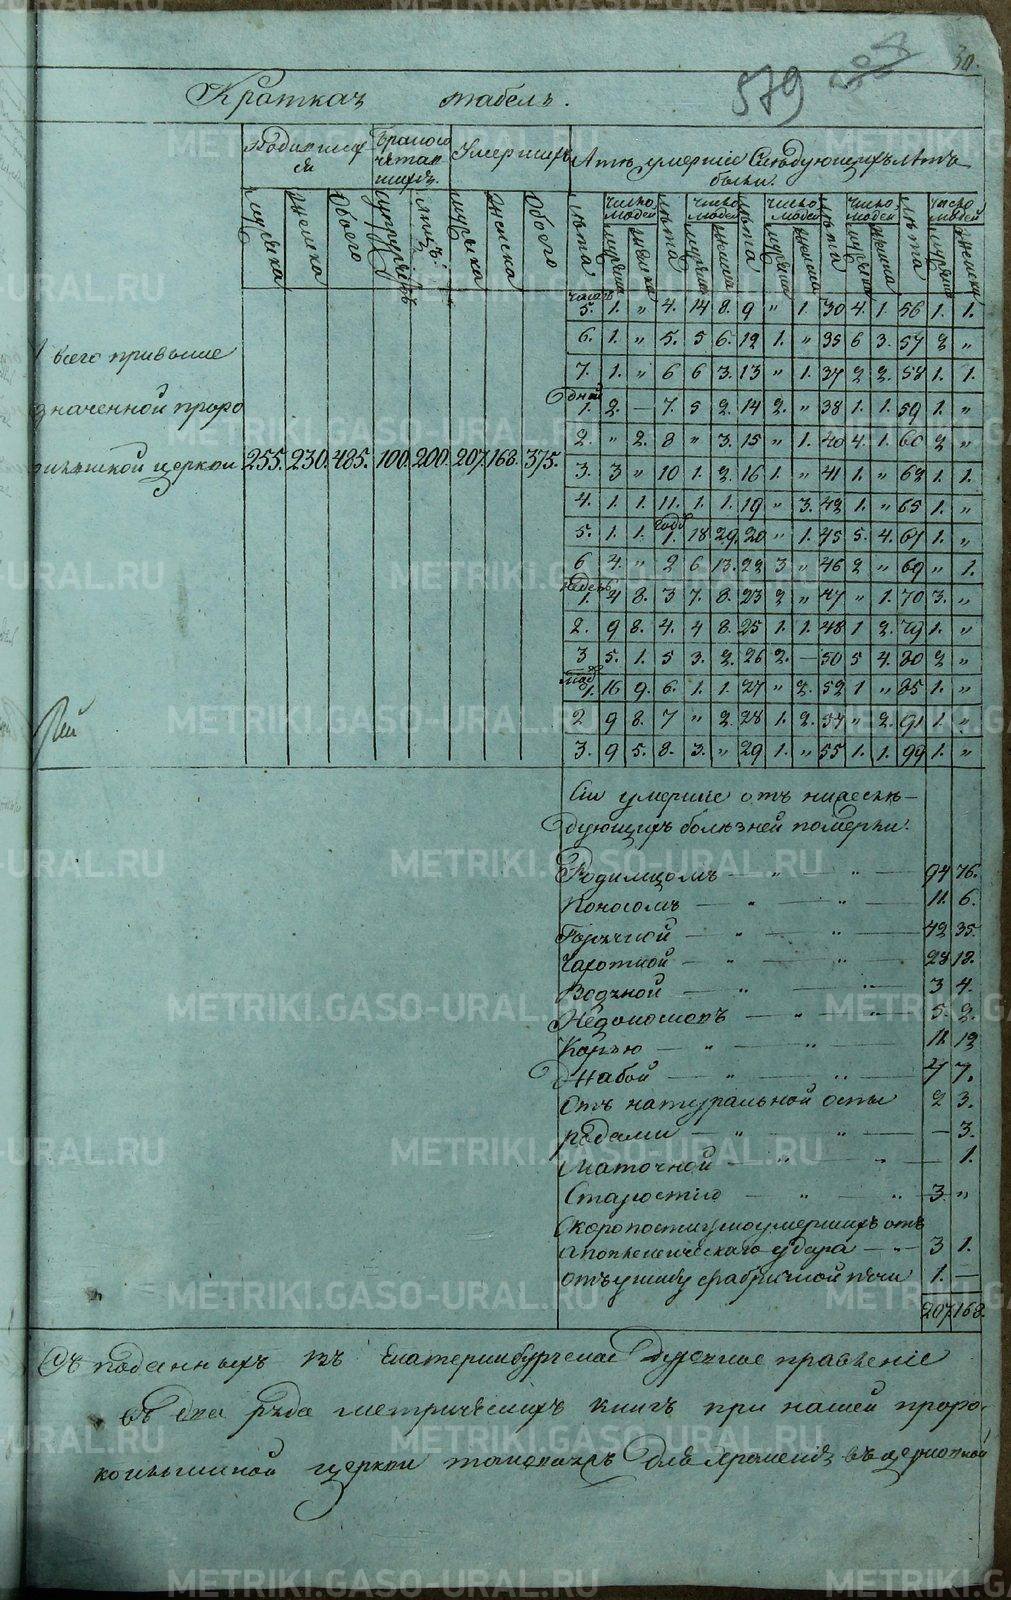 30.
579
Краткая табель.
Родившихся
Бракосочетавшихся
Умершихъ
Лѣтъ умершіе Слѣдующихъ лѣтъ были.
мужеска женска обоего супружествъ лицъ мужска женска обоего
лѣта число людей лѣта число людей лѣта число людей лѣта число людей лѣта число людей
часовъ
5. 1. „ 4. 14 8. 9 „ 1. 30 4. 1. 56 1. 1.
6. 1. „ 5. 5 6. 12 1. „ 35 6 3. 57 2 „
7. 1. „ 6 6 3. 13 „ 1. 37 2 2. 58 1. 1.
дней
1. 2. — 7. 5 2. 14 2. „ 38 1. 1. 59 1. „
2. „ 2. 8 „ 3. 15 „ 1. 40 4. 1. 60 2 „
3. 3 „ 10 1. 2. 16 1. „ 41 1. „ 62 1. 1.
4. 1. 1. 11. 1. 1. 19 „ 3. 42 1. „ 65 1. „
годъ
5. 1. 1. 1. 18 29. 20 „ 1. 45 5. 4. 67 1. „
6 4. „ 2 6 13. 22 3 „ 46 2 „ 69 „ 1.
недель
1. 4 8. 3 7. 8. 23 2 „ 47 „ 1. 70 3. „
2. 9 8. 4. 4 8. 25 1. 1. 48 1 2. 79 1. „
3 5. 1. 5 3. 2. 26 2. — 50 5 4. 80 2 „
1. 16 9. 6. 1. 1. 27 „ 2. 52 1 „ 85 1. „
2 9 8. 7 „ 2. 28 1. 2. 54 „ 2. 91 1. „
3. 9 5. 8. 3. „ 29 1. „ 55 1. 1. 99 1. „
всего привыше
значенной проро
церкви 255. 230. 485. 100. 200. 207. 168. 375.
Сіи умершіе отъ нижеслѣ-
дующихъ болѣзней померли.
Родимцомъ — „ — „ — 94 76.
Поносомъ — „ — „ — 11. 6.
Горячкой — „ — „ — 42 35.
Чахоткой — „ — „ — 28 18.
Водяной — „ — „ — 3 4.
Недоноскъ — „ — „ — 5. 2.
Корью — „ — „ — 11. 12
Жабой — „ — „ — 4 7.
Отъ натуральной оспы 2 3.
родами — „ — „ — — 3.
маточной — „ — „ — 1.
Старостію — „ — „ 3. „
Скоропостижно умершихъ отъ
апоплексическаго удара — „ — 3 1.
отъ ушибу фабричной печи 1. —
207. 168.
Съ поданныхъ въ Екатеринбургское Духовное правленіе
въ два ряда метрическихъ книгъ при нашей проро-
церкви таковыхъ для храненія въ церковной
METRIKI.GASO-URAL.RU